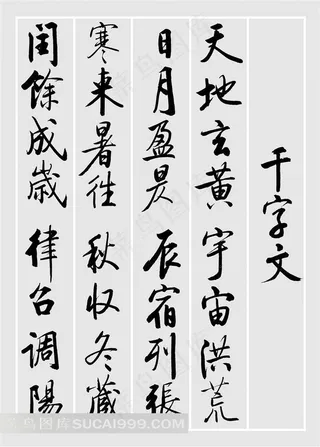 千字文
天地玄黄宇宙洪荒
日月盈昃辰宿列張
寒来暑往秋收冬藏
閏餘成歲律吕調陽
菜鸟图库 SUCAI999.COM